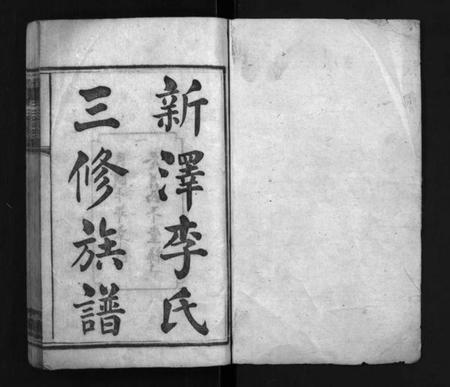 新澤李氏
三修族譜